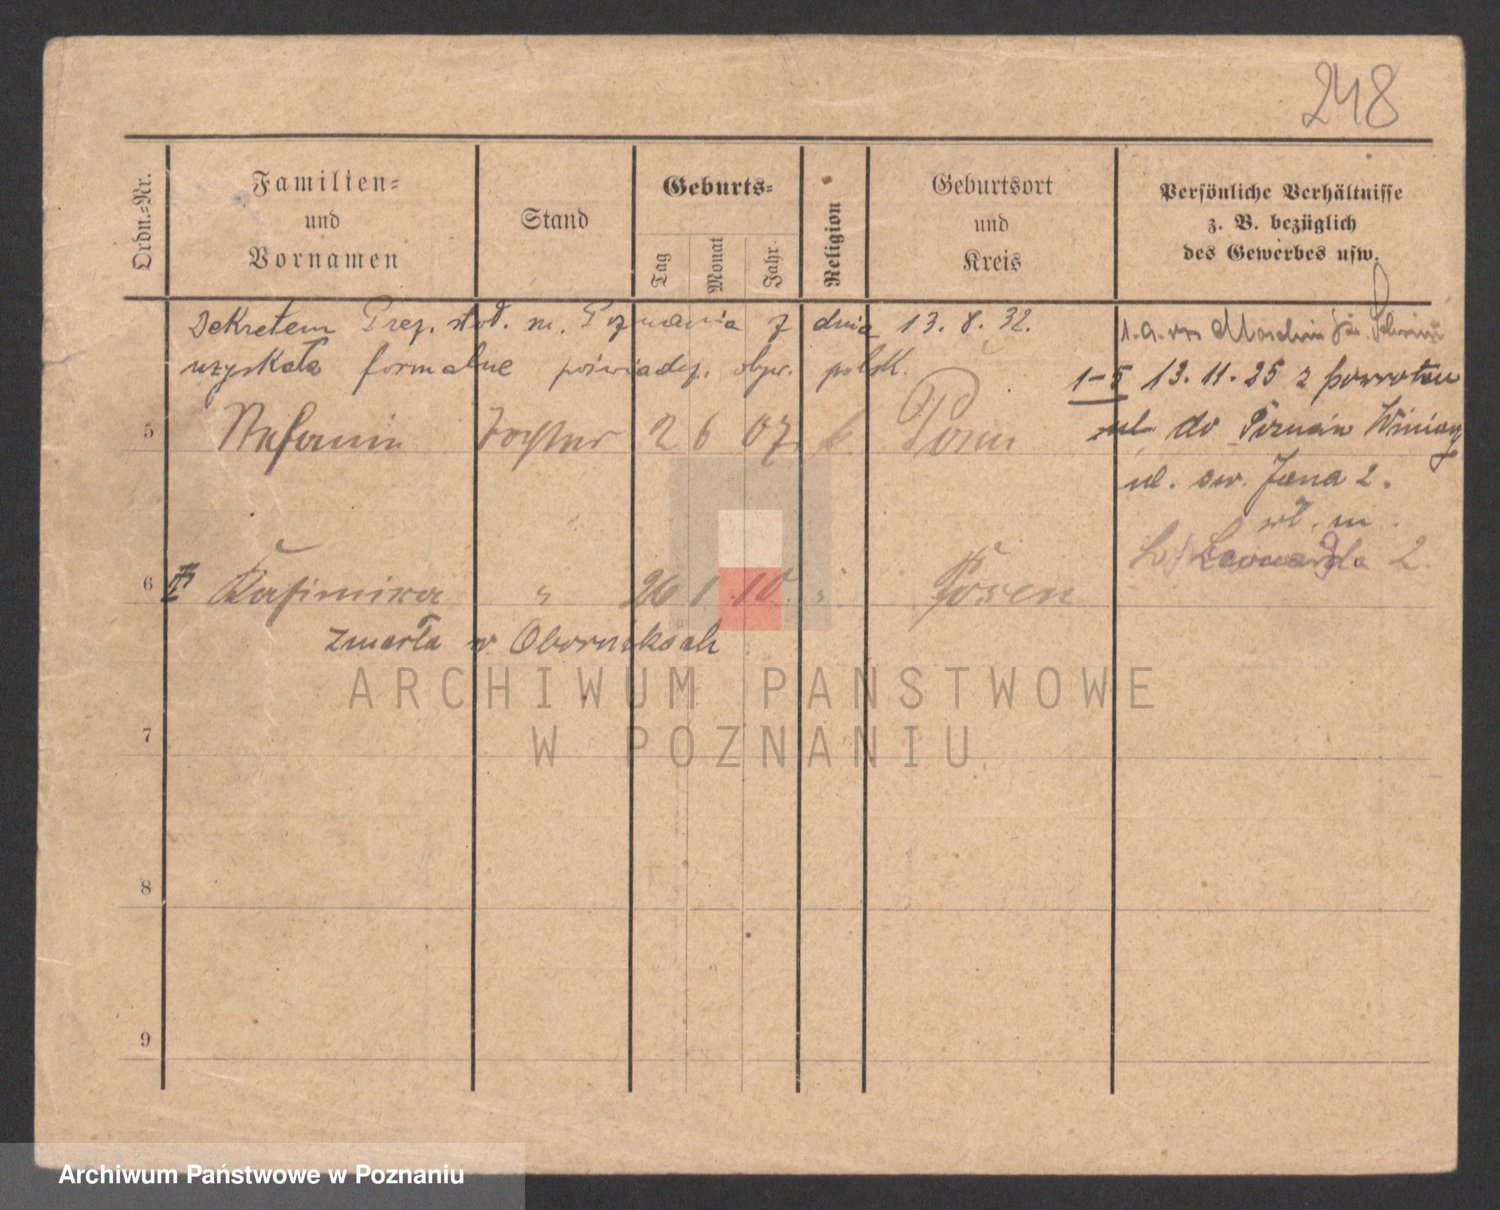 248
Ordn.=Nr.
Familien=
und
Vornamen
Stand
Geburts=
Tag
Monat
Jahr.
Religion
Geburtsort
und
Kreis
Persönliche Verhältnisse
z. B. bezüglich
des Gewerbes usw.
Dekretem Prez. stoł. m. Poznania z dnia 13. 8. 32.
uzyskała formalne poświadcz. obyw. polsk.
1-5 13. 11. 25 z powrotem
do Poznań Winiary
ul. św. Jana 2.
wł. m.
Leonarda 2.
5 Tochter 2 6 07 k. Posen
6 Kasimira " 26 1 10 " Posen
zmarła w Obornikach
7
8
9
ARCHIWUM PAŃSTWOWE
W POZNANIU
Archiwum Państwowe w Poznaniu